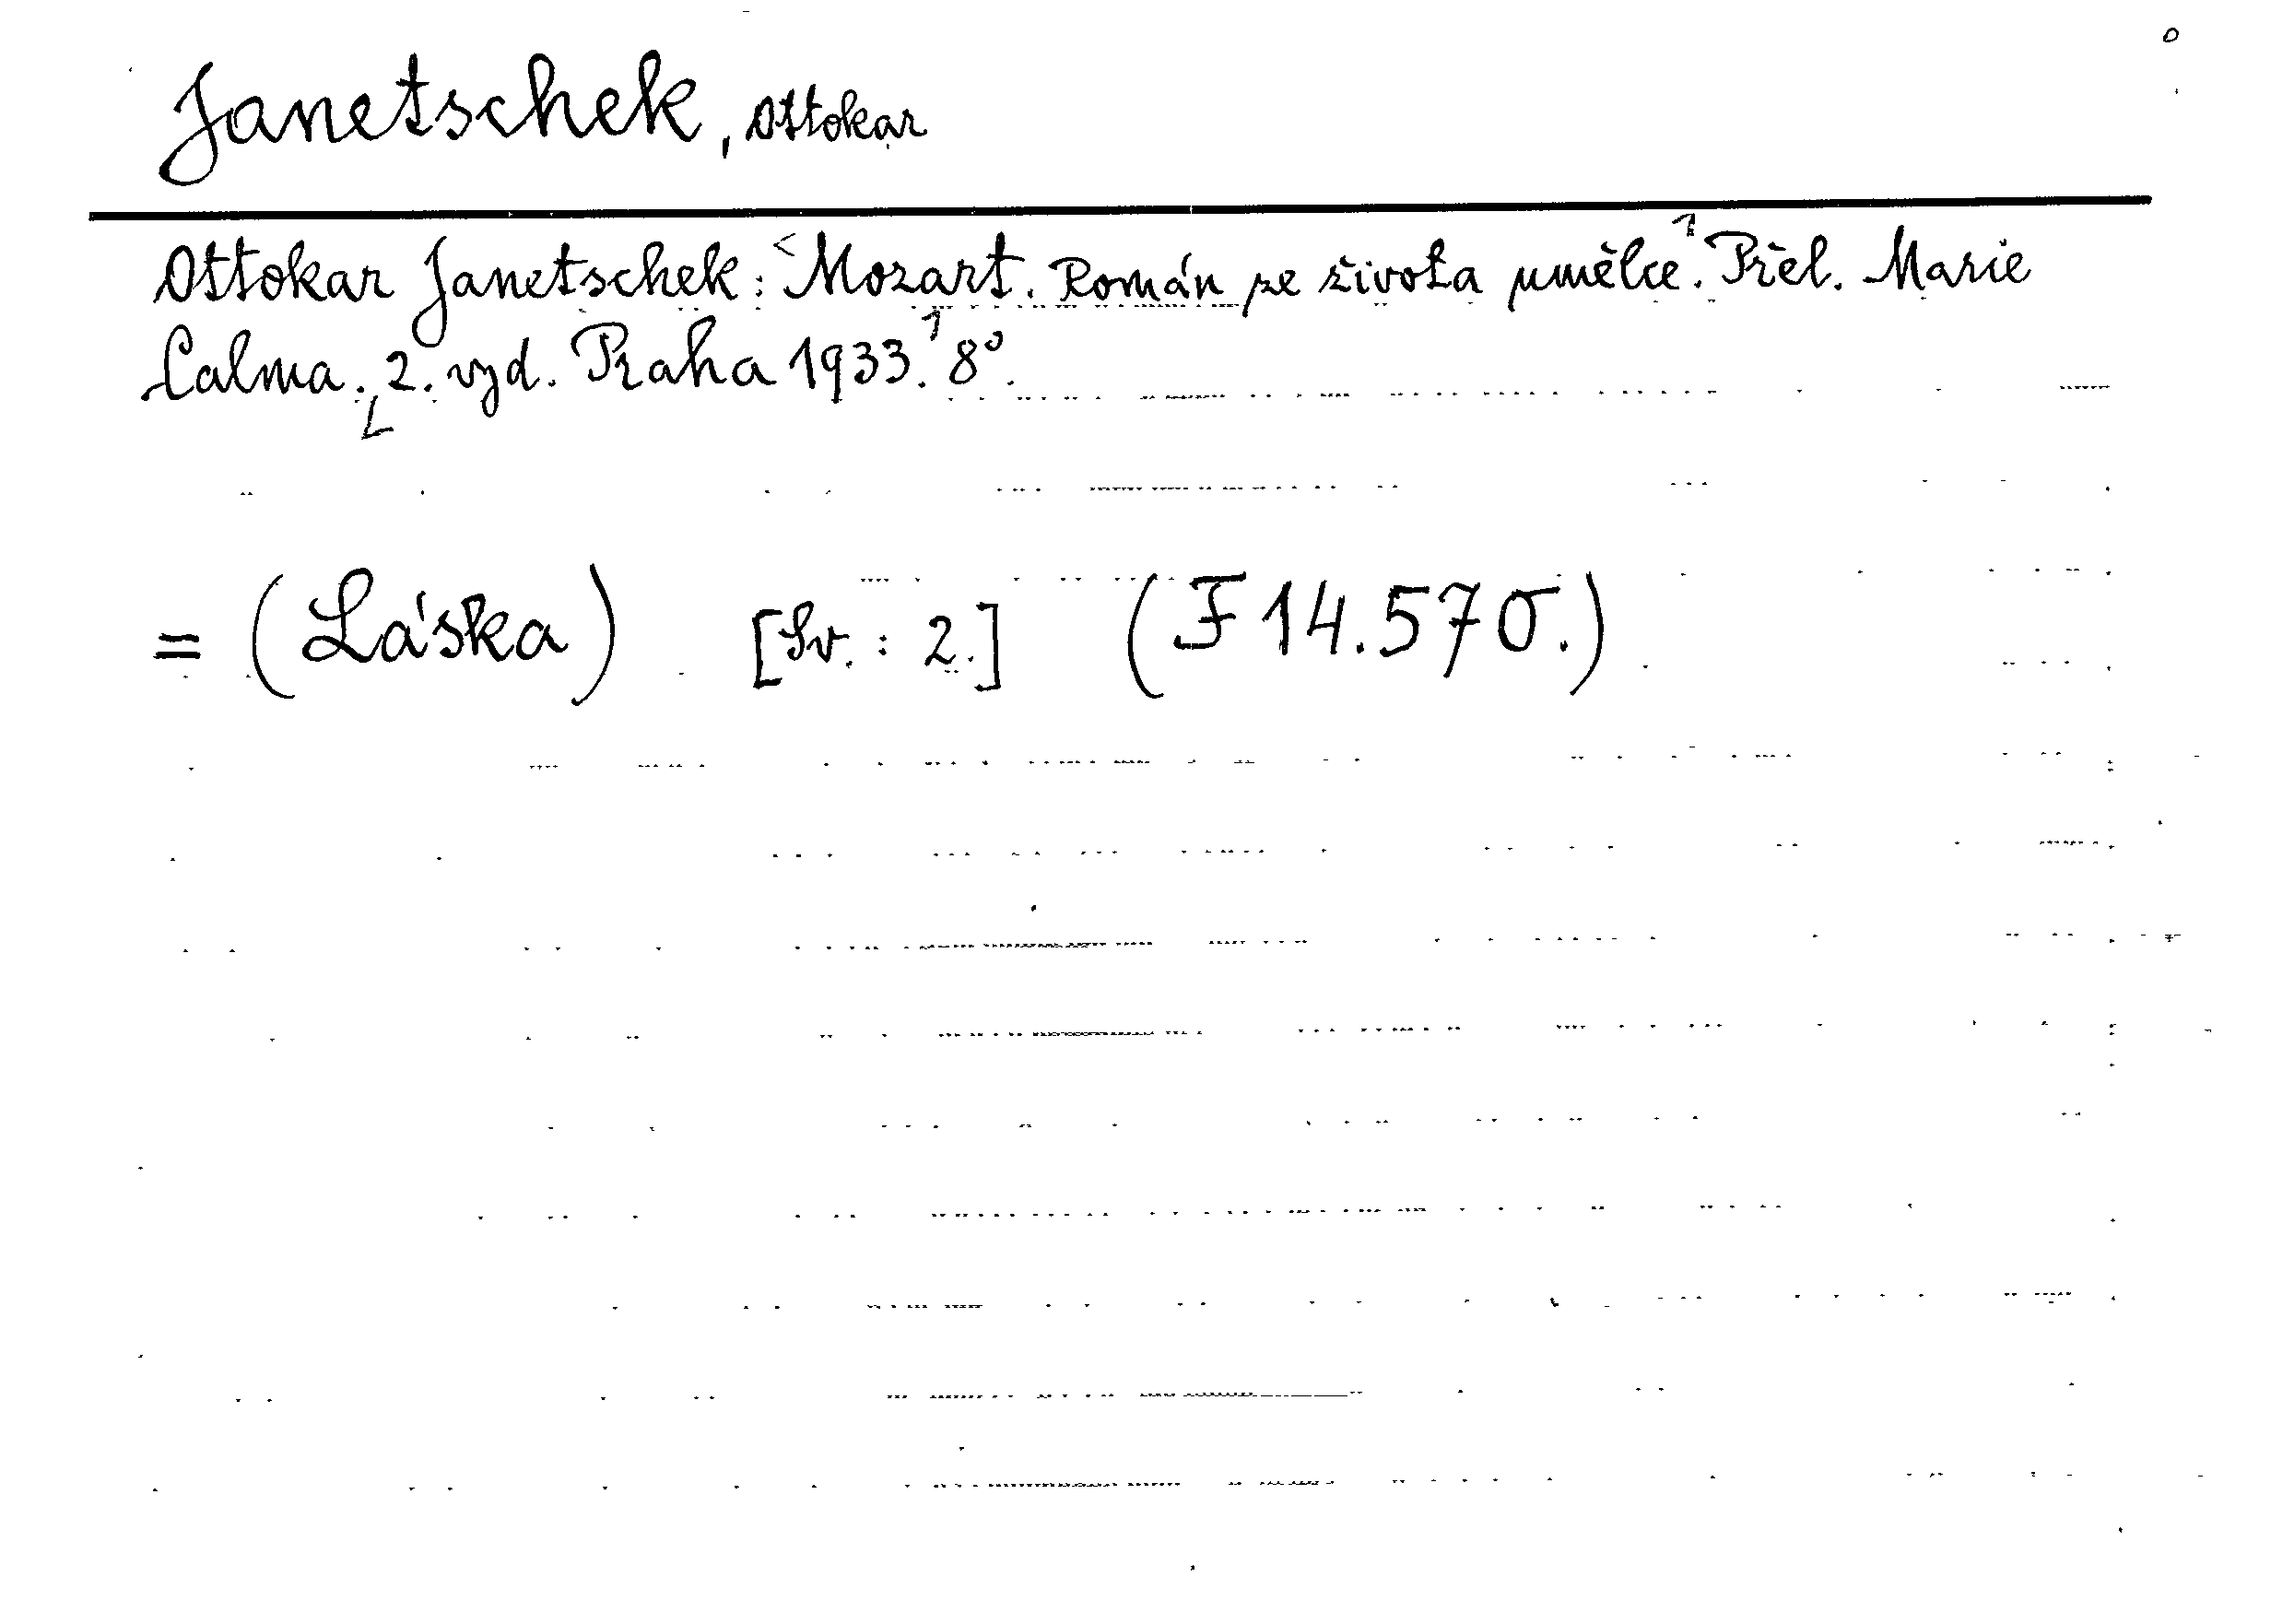 Janetschek, Ottokar
Ottokar Janetschek: Mozart. Román ze života umělce. Přel. Marie
Calma. 2. vyd. Praha 1933. 8°.
= (Láska) [Sv.: 2.] (F 14.570.)